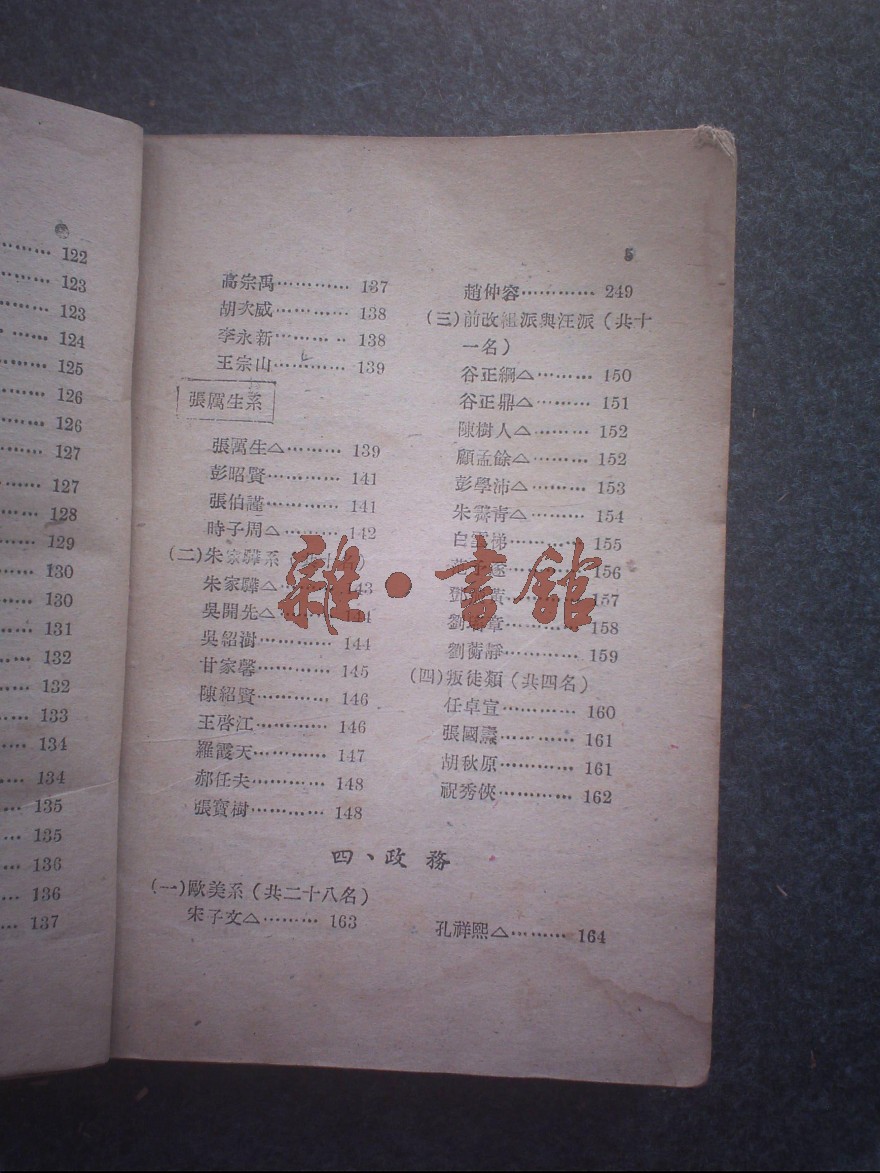 122
123
123
124
125
126
126
127
127
128
129
130
130
131
132
132
133
134
134
135
135
136
136
137
5
高宗禹………… 137
胡次威………… 138
李永新………… 138
王宗山………… 139
張厲生系
張厲生△……… 139
彭昭賢………… 141
張伯謹………… 141
時子周△……… 142
(二)朱家驊系
朱家驊△……… 143
吳開先△………
吳紹澍………… 144
甘家馨………… 145
陳紹賢………… 146
王啓江………… 146
羅霞天………… 147
郝任夫………… 148
張寶樹………… 148
趙仲容………… 249
(三)前改組派與汪派(共十
一名)
谷正綱△……… 150
谷正鼎△……… 151
陳樹人△……… 152
顧孟餘△……… 152
彭學沛△……… 153
朱霽青△……… 154
白雲梯………… 155
156
157
章………… 158
劉蘅靜………… 159
(四)叛徒類(共四名)
任卓宣………… 160
張國燾………… 161
胡秋原………… 161
祝秀俠………… 162
四、政務
(一)歐美系(共二十八名)
宋子文△……… 163
孔祥熙△……… 164
雜·書舘